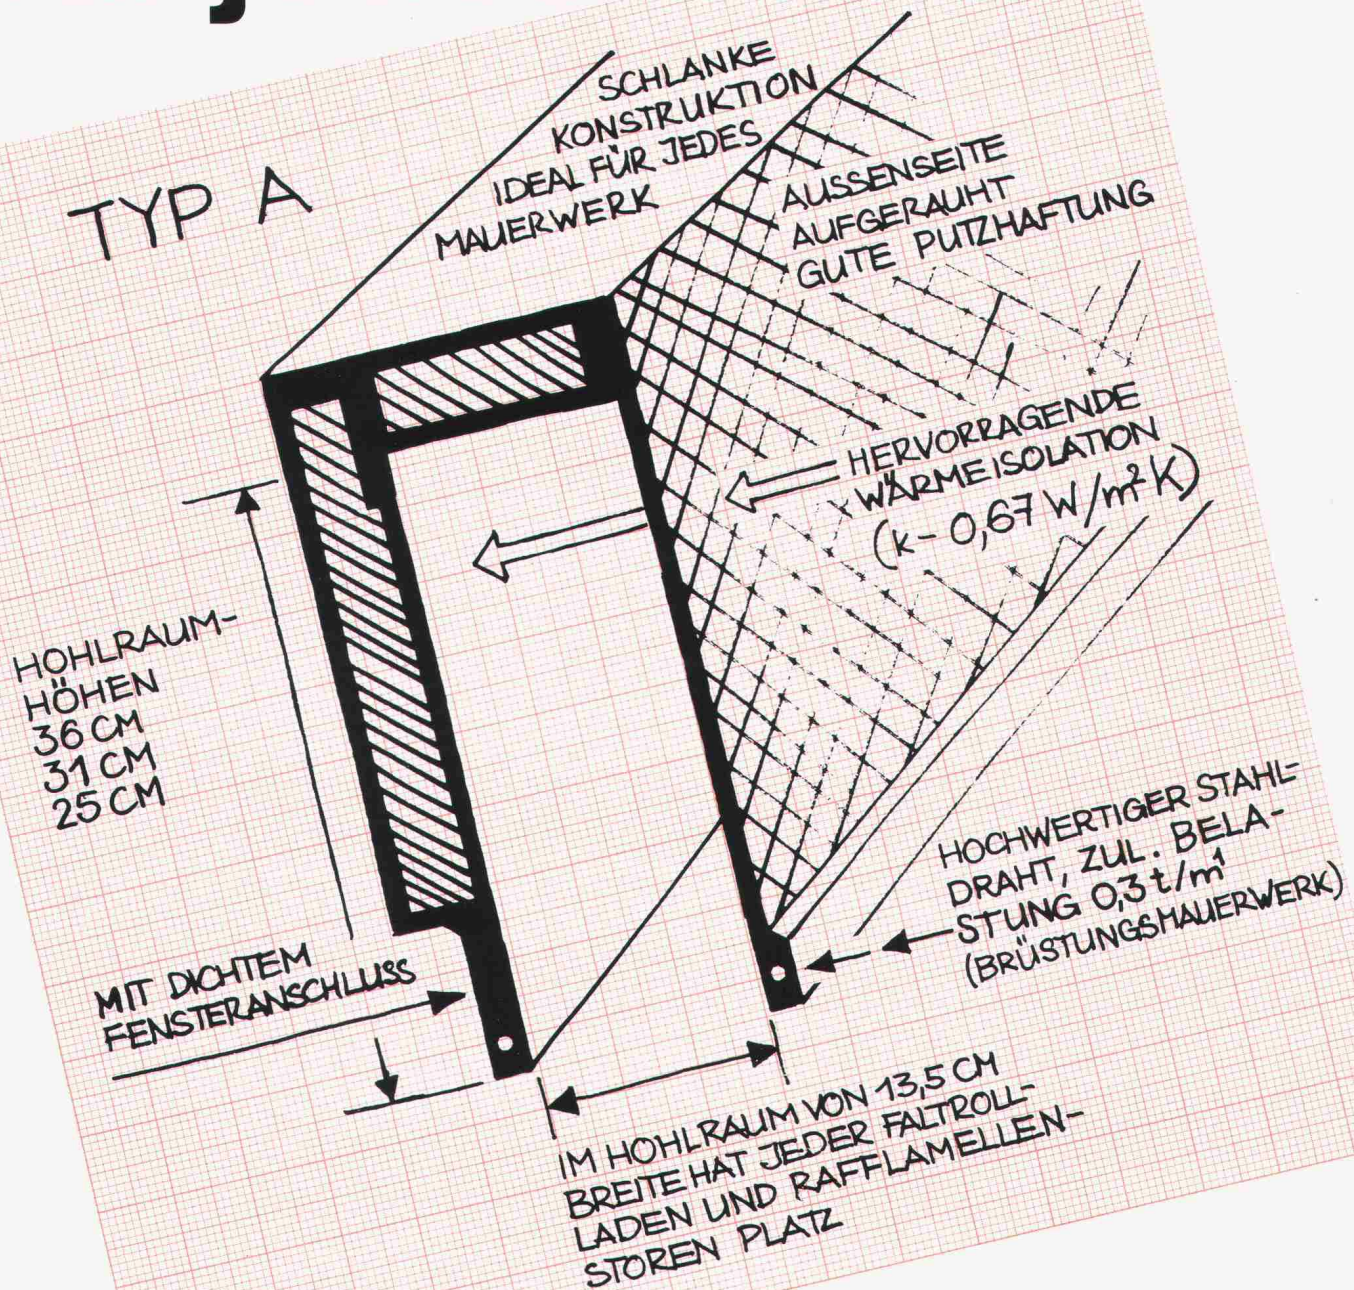 TYP A
SCHLANKE
KONSTRUKTION
IDEAL FÜR JEDES
MAUERWERK
AUSSENSEITE
AUFGERAUHT
GUTE PUTZHAFTUNG
HERVORRAGENDE
WÄRMEISOLATION
(k- 0,67 W/m² K)
HOHLRAUM-
HÖHEN
36 CM
31 CM
25 CM
HOCHWERTIGER STAHL-
DRAHT, ZUL. BELA-
STUNG 0,3 t/m¹
(BRÜSTUNGSMAUERWERK)
MIT DICHTEM
FENSTERANSCHLUSS
IM HOHLRAUM VON 13,5 CM
BREITE HAT JEDER FALTROLL-
LADEN UND RAFFLAMELLEN-
STOREN PLATZ